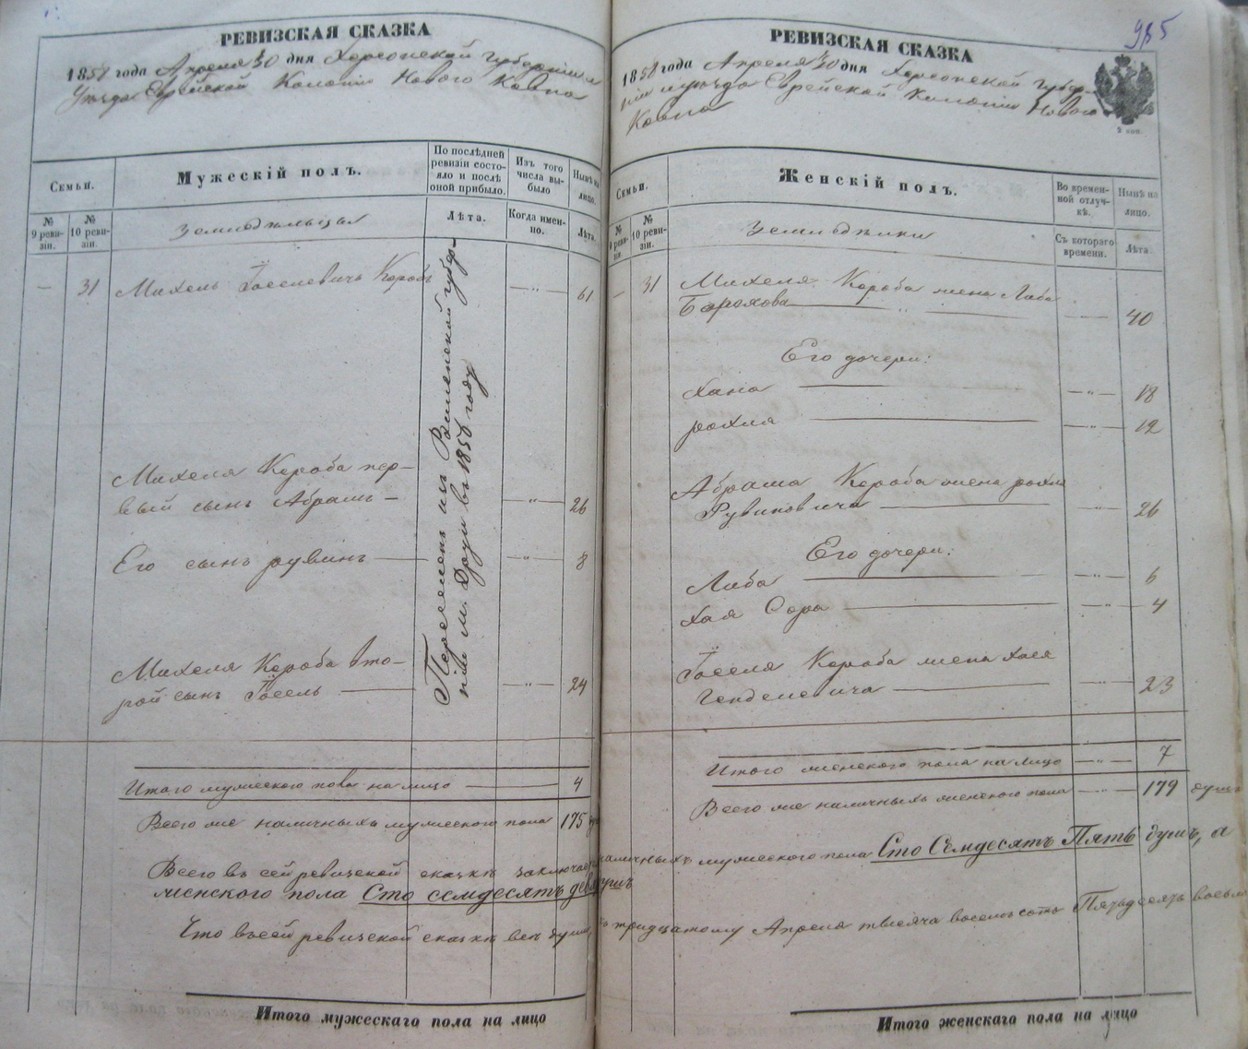 РЕВИЗСКАЯ СКАЗКА
1858 года Апреля 30 дня Херсонской Губерніи и
Уѣзда Еврейской Колоніи Нового Ковна
Семьи.
Мужескій полъ.
По послѣдней ревизіи состояло и послѣ оной прибыло.
Изъ того числа выбыло
Нынѣ на лицо.
№ 9 ревизіи.
№ 10 ревизіи.
Земледѣльцы
Лѣта.
Когда именно.
Лѣта.
— 31 Михель Іоселевичъ Коробъ — " — 61
Михеля Короба пер-
вый сынъ Абрамъ — — " — 26
Его сынъ рувинъ — — " — 8
Михеля Короба вто-
рой сынъ Іосель — — " — 24
Перемеленъ изъ Виленской губер-
ніи м. Друи въ 1858 году
Итого мужеского пола на лицо — 4
Всего же наличныхъ мужеского пола 175
РЕВИЗСКАЯ СКАЗКА
985
1858 года Апреля 30 дня Херсонской Губер-
ніи и уѣзда Еврейской Колоніи Нового
Ковна
2 коп.
Семьи.
Женскій полъ.
Во временной отлучкѣ.
Нынѣ на лицо.
№ 9 ревизіи
№ 10 ревизіи.
Земледѣлки
Съ котораго времени.
Лѣта.
— 31 Михеля Короба жена Либа
Борохова — " — 40
Его дочери:
Хана — " — 18
рохля — " — 12
Абрама Короба жена рохля
Рувиновича — " — 26
Его дочери:
Либа — " — 6
Хая Сора — " — 4
Іоселя Короба жена Хася
Генделевича — " — 23
Итого женского пола на лицо — " — 7
Всего же наличныхъ женского пола — " — 179 душъ
Всего въ сей ревизской сказкѣ заключается наличныхъ мужеского пола Сто Семдесятъ Пять душъ, а
женского пола Сто семдесятъ девять душъ
Что въ сей ревизской сказкѣ всѣ души, къ тридцатому Апреля тысяча восемь сотъ Пятьдесятъ восьм
Итого мужескаго пола на лицо
Итого женскаго пола на лицо